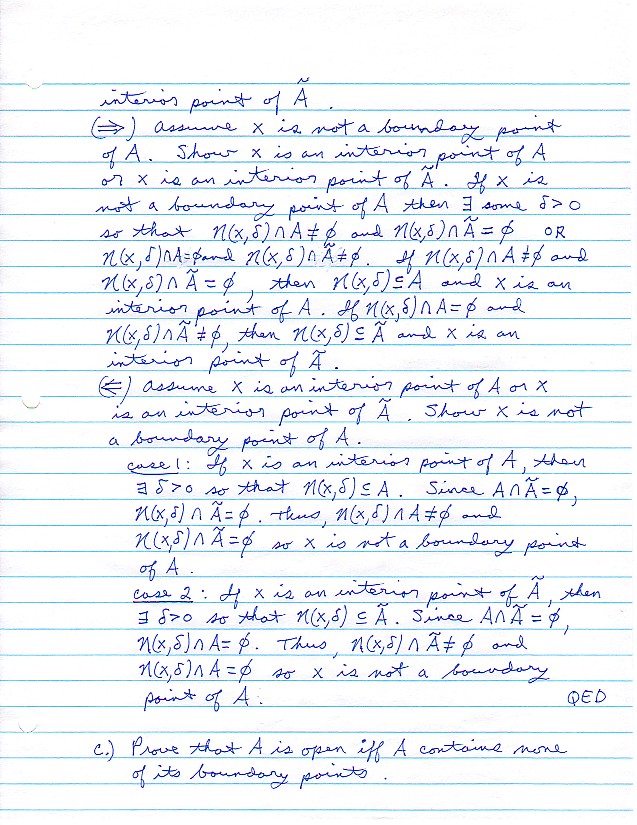 interior point of Ã .
(⇒) assume x is not a boundary point
of A. Show x is an interior point of A
or x is an interior point of Ã. If x is
not a boundary point of A then ∃ some δ>0
so that N(x,δ)∩A≠φ and N(x,δ)∩Ã=φ OR
N(x,δ)∩A=φ and N(x,δ)∩Ã≠φ. If N(x,δ)∩A≠φ and
N(x,δ)∩Ã=φ, then N(x,δ)⊆A and x is an
interior point of A. If N(x,δ)∩A=φ and
N(x,δ)∩Ã≠φ, then N(x,δ)⊆Ã and x is an
interior point of Ã.
(⇐) assume x is an interior point of A or x
is an interior point of Ã. Show x is not
a boundary point of A.
case 1: If x is an interior point of A, then
∃ δ>0 so that N(x,δ)⊆A. Since A∩Ã=φ,
N(x,δ)∩Ã=φ. Thus, N(x,δ)∩A≠φ and
N(x,δ)∩Ã=φ so x is not a boundary point
of A.
case 2: If x is an interior point of Ã, then
∃ δ>0 so that N(x,δ)⊆Ã. Since A∩Ã=φ,
N(x,δ)∩A=φ. Thus, N(x,δ)∩Ã≠φ and
N(x,δ)∩A=φ so x is not a boundary
point of A. QED
C.) Prove that A is open iff A contains none
of its boundary points.